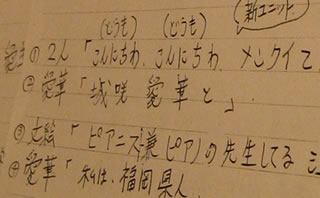 新ユニット
(どうも) (どうも)
の2人「こんにちわ、こんにちわ メンクイで
② 愛華「城咲 愛華と」
③ 「ピアニスト兼ピアノの先生してる
④ 愛華「私は、福岡県人